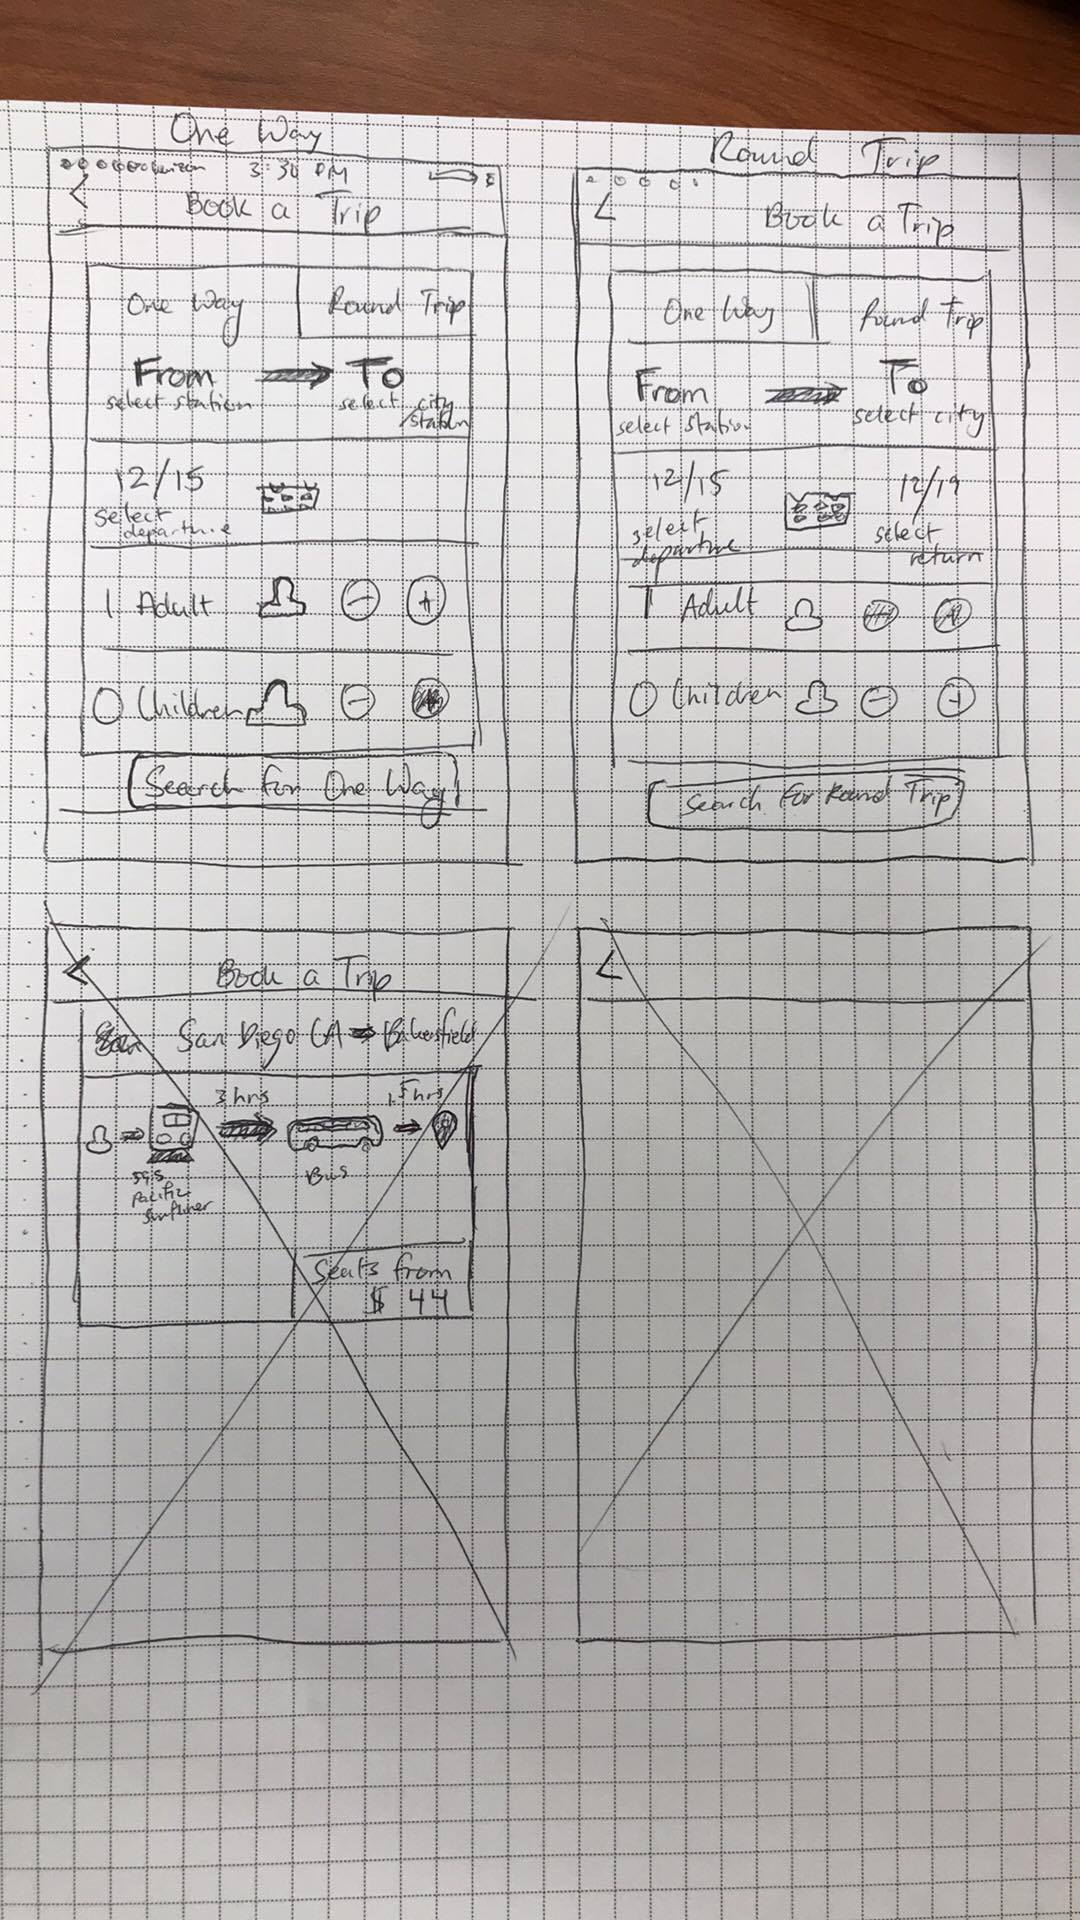 One Way
Verizon 3:30 PM
<
Book a Trip
One Way Round Trip
From To
select station select city
/station
12/15
select
departure
1 Adult - +
0 Children -
Search for One Way
Round Trip
<
Book a Trip
One Way Round Trip
From To
select station select city
12/15 12/19
select departure select return
1 Adult
0 Children - +
Search For Round Trip
<
Book a Trip
San Diego CA Bakersfield
3 hrs 1.5 hrs
595
Pacific
Surfliner
Bus
Seats from
$ 44
<